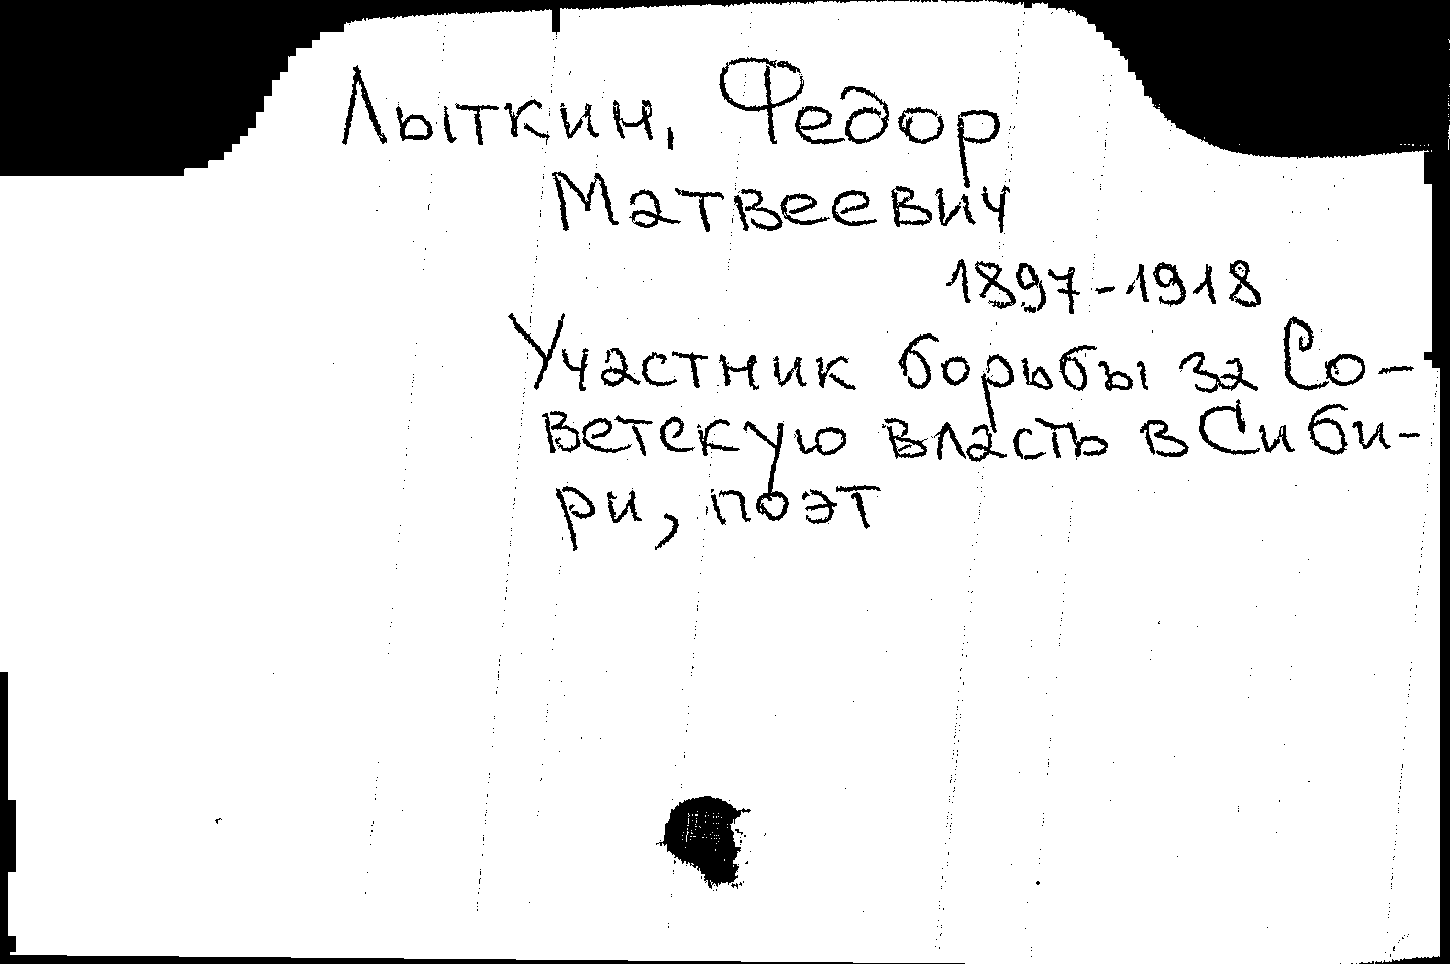 Лыткин, Федор
Матвеевич
1897-1918
Участник борьбы за Со-
ветскую власть в Сиби-
ри, поэт